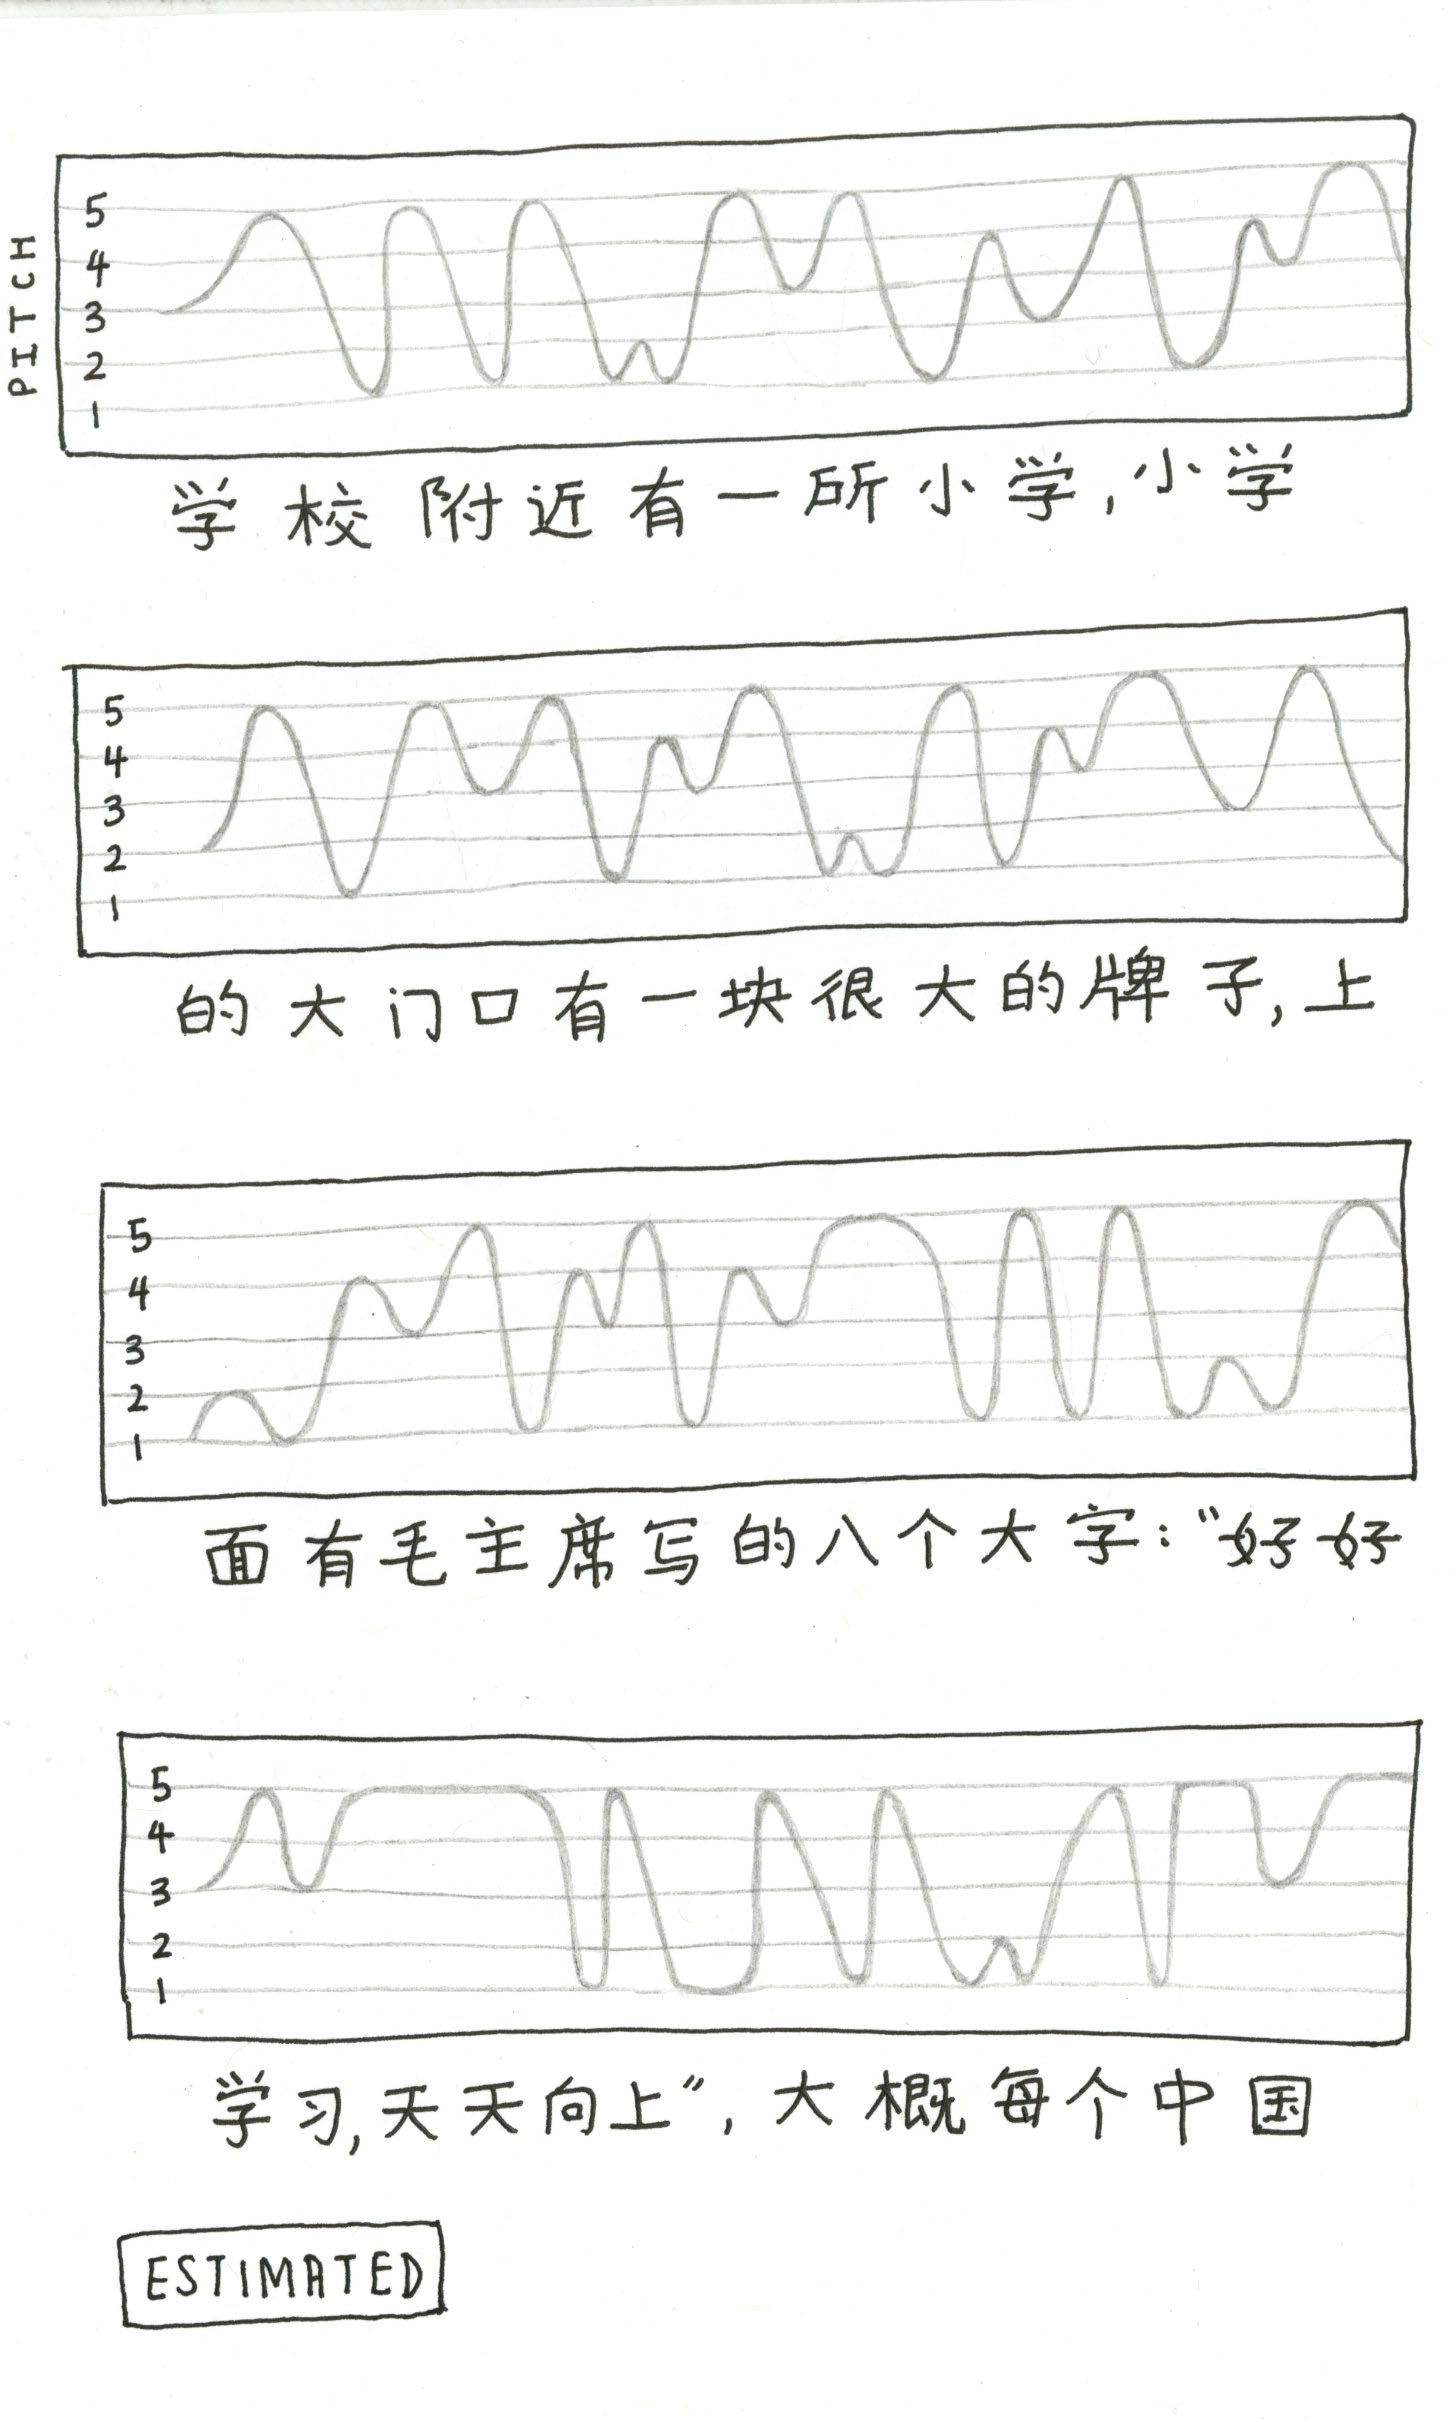 PITCH
5
4
3
2
1
学校附近有一所小学,小学
5
4
3
2
1
的大门口有一块很大的牌子,上
5
4
3
2
1
面有毛主席写的八个大字:“好好
5
4
3
2
1
学习,天天向上”,大概每个中国
ESTIMATED